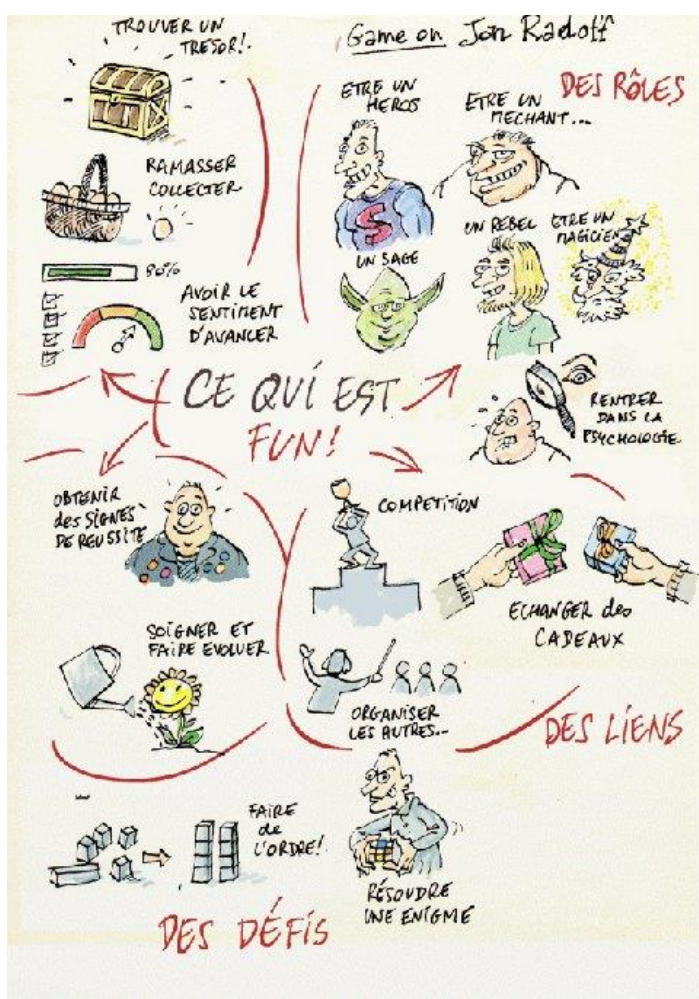 TROUVER UN
TRESOR!
Game on Jon Radoff
DES RÔLES
ETRE UN
HEROS
ETRE UN
MECHANT...
RAMASSER
COLLECTER
UN SAGE
UN REBEL
ETRE UN
MAGICIEN
80%
AVOIR LE
SENTIMENT
D'AVANCER
CE QUI EST
FUN!
RENTRER
DANS LA
PSYCHOLOGIE
OBTENIR
des SIGNES
DE REUSSITE
COMPETITION
ECHANGER des
CADEAUX
SOIGNER ET
FAIRE EVOLUER
ORGANISER
LES AUTRES...
DES LIENS
FAIRE
de
L'ORDRE!
RÉSOUDRE
UNE ENIGME
DES DÉFIS